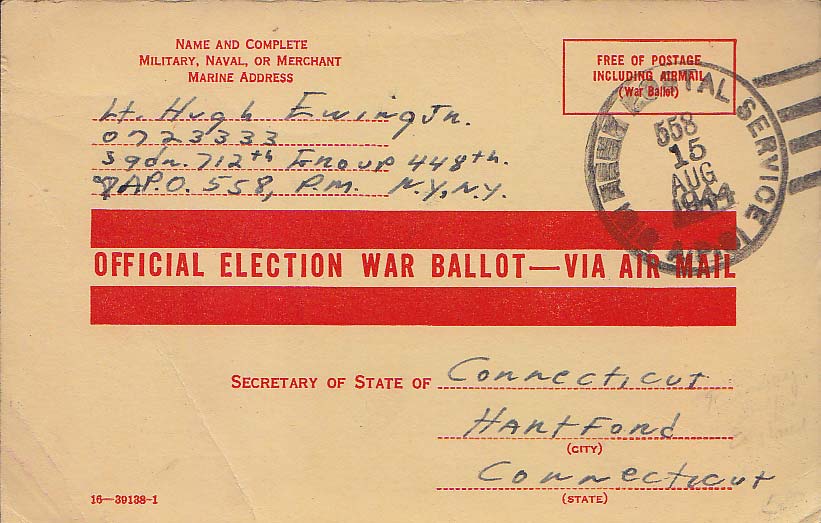 NAME AND COMPLETE
MILITARY, NAVAL, OR MERCHANT
MARINE ADDRESS
Lt. Hugh Ewing Jr.
0723333
Sqdn. 712th Group 448th.
A.P.O. 558, P.M. N.Y., N.Y.
FREE OF POSTAGE
INCLUDING AIRMAIL
(War Ballot)
POSTAL SERVICE
558
15
AUG
1944
A.P.O.
OFFICIAL ELECTION WAR BALLOT—VIA AIR MAIL
SECRETARY OF STATE OF Connecticut
Hartford
(CITY)
Connecticut
(STATE)
16—39138-1